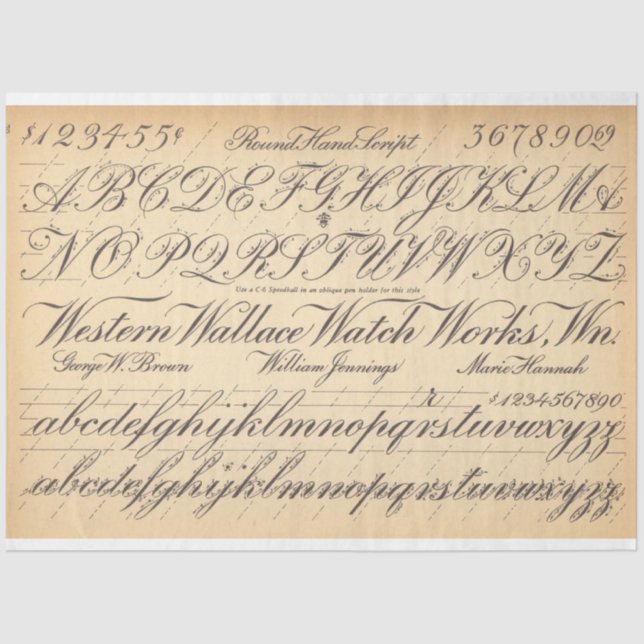 $1234.55¢ Round Hand Script 36789069
ABCDEFGHIJKLM
NOPQRSTUVWXYZ
Use a C-6 Speedball in an oblique pen holder for this style
Western Wallace Watch Works, Wn.
George W. Brown William Jennings Marie Hannah
r $1234567890
abcdefghijklmnopqrstuvwxyzz
abcdefghijklmnopqrstuvwxyzz